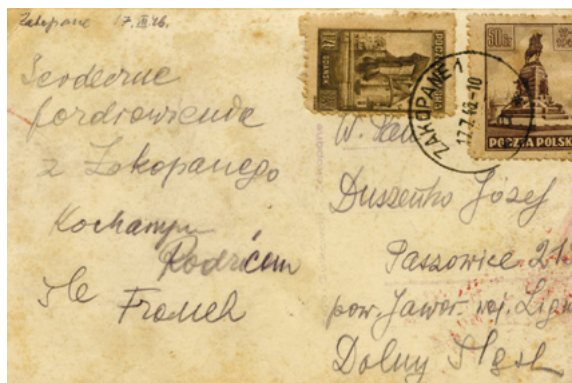 Zakopane 17. III 46.
Serdeczne
pozdrowienia
z Zakopanego
Kochanym
Rodzicom
Franek
POCZTA
ZAKOPANE 1
POCZTA POLSKA
W. Pan
Duszeńko Józef
Paszowice 21
pow. Jawor. woj. Lign
Dolny Śląsk